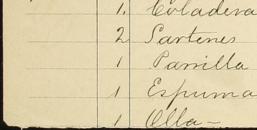 1. Coladera
2 Sartenes
1 Parrilla
1 Espuma
1 Olla -